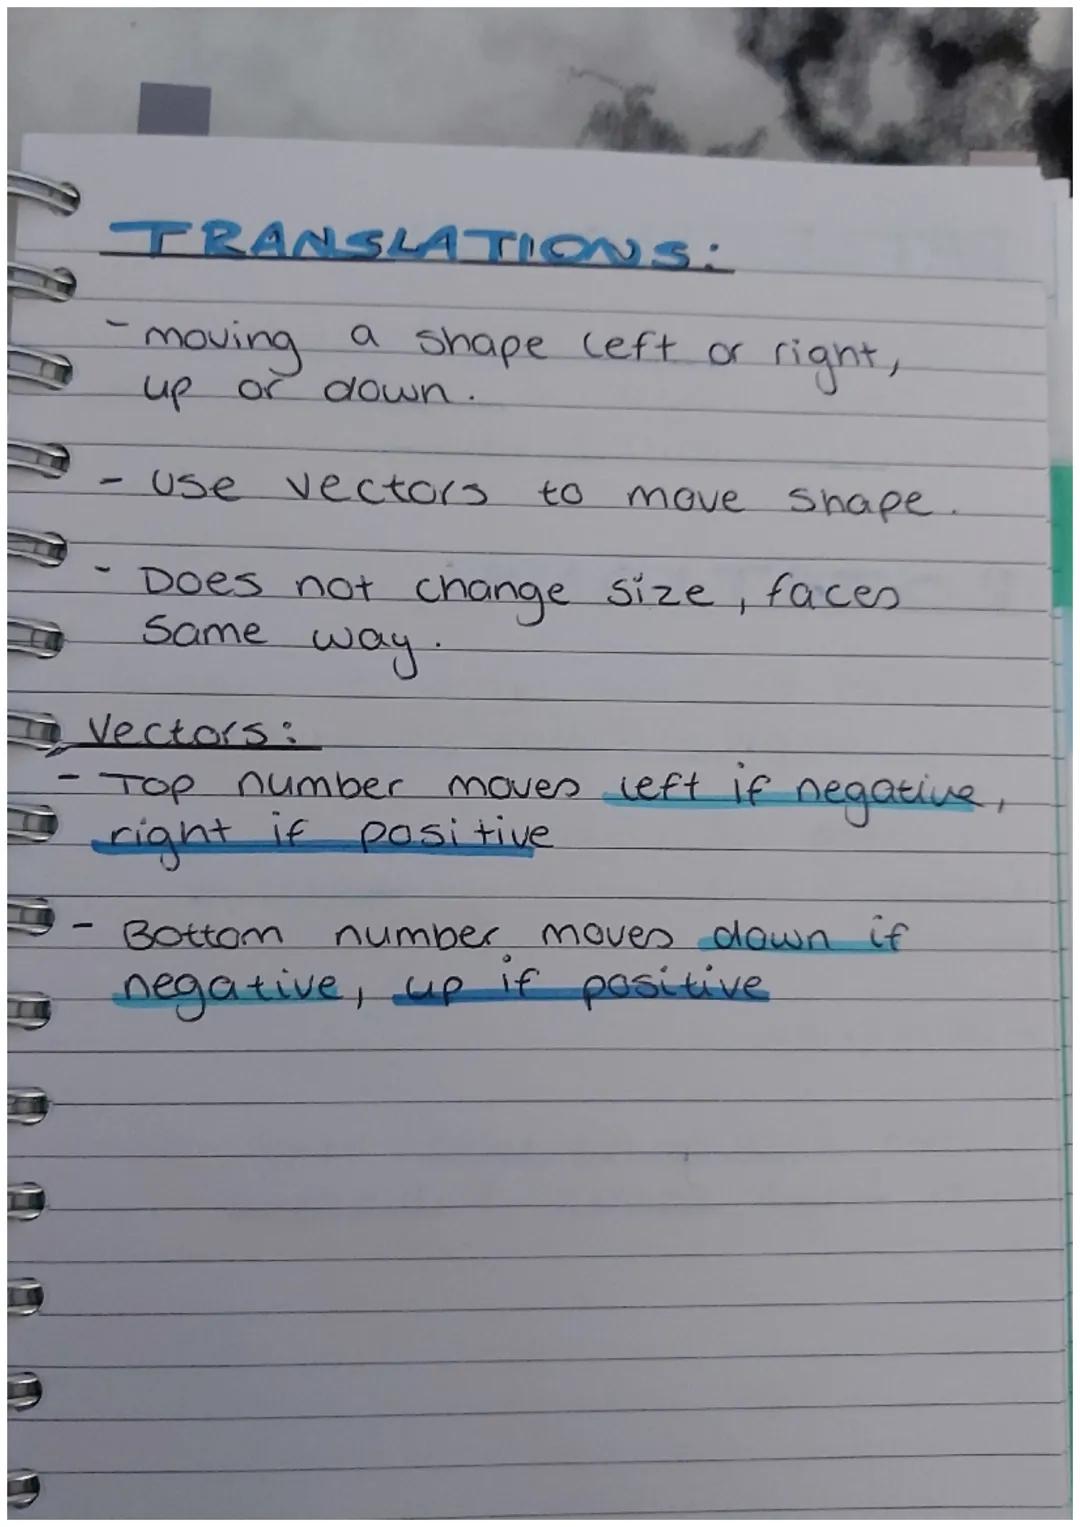 TRANSLATIONS:
- moving a shape left or right,
up or down.
- use vectors to move shape.
- Does not change size, faces
same way.
Vectors:
- Top number moves left if negative,
right if positive
- Bottom number moves down if
negative, up if positive